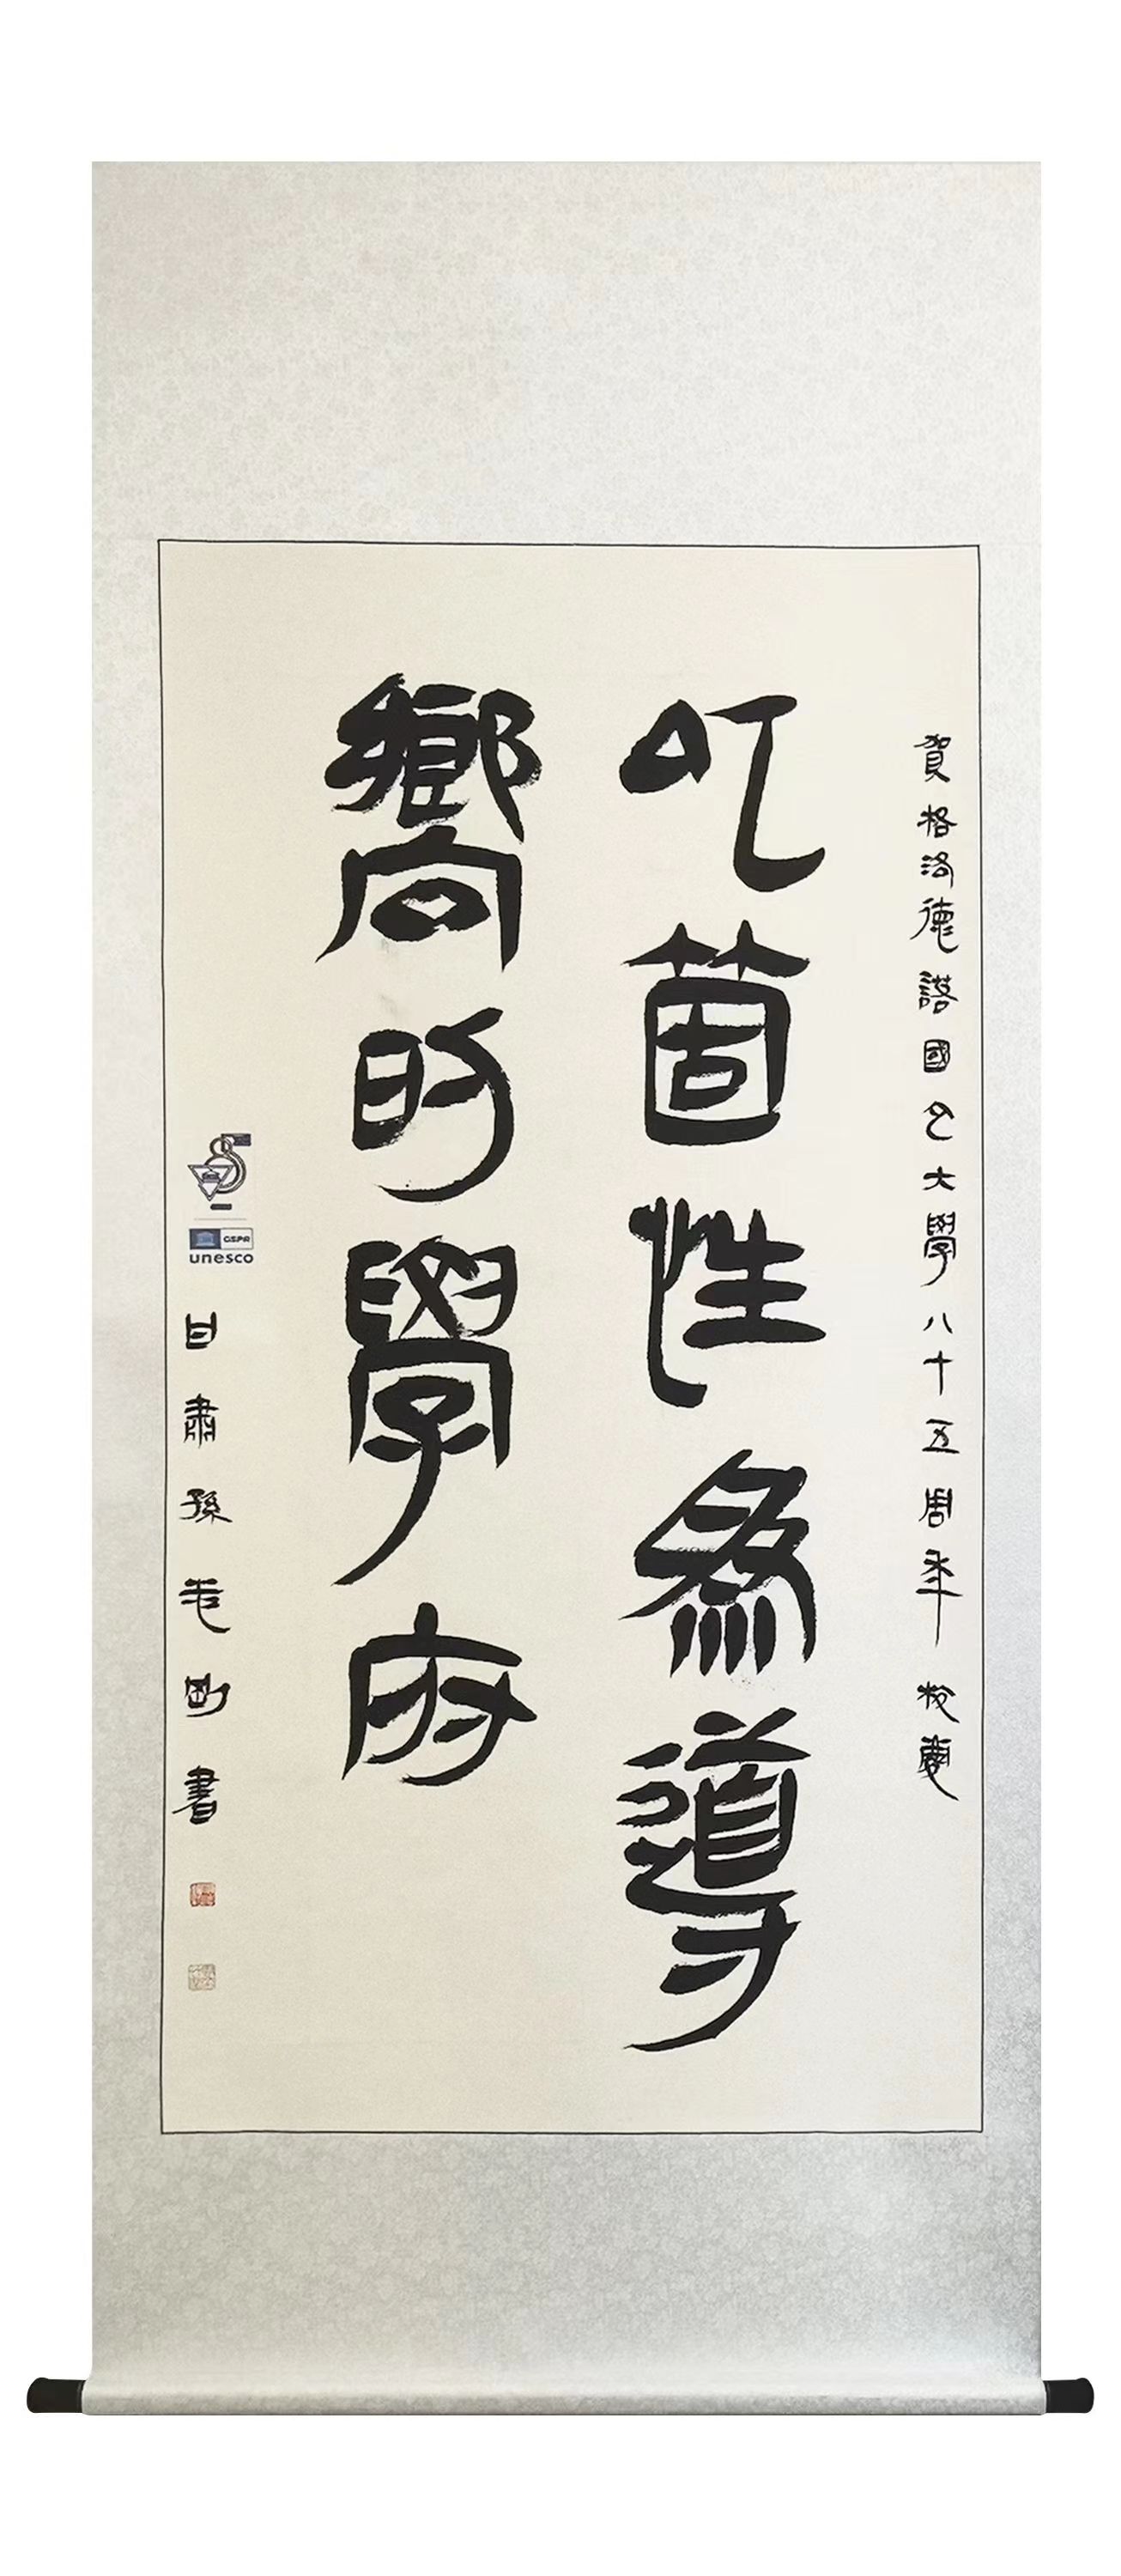 賀格洛德諾國立大學八十五周年校慶
以箇性為導
嚮的學府
GSPR
unesco
甘肅孫老剛書